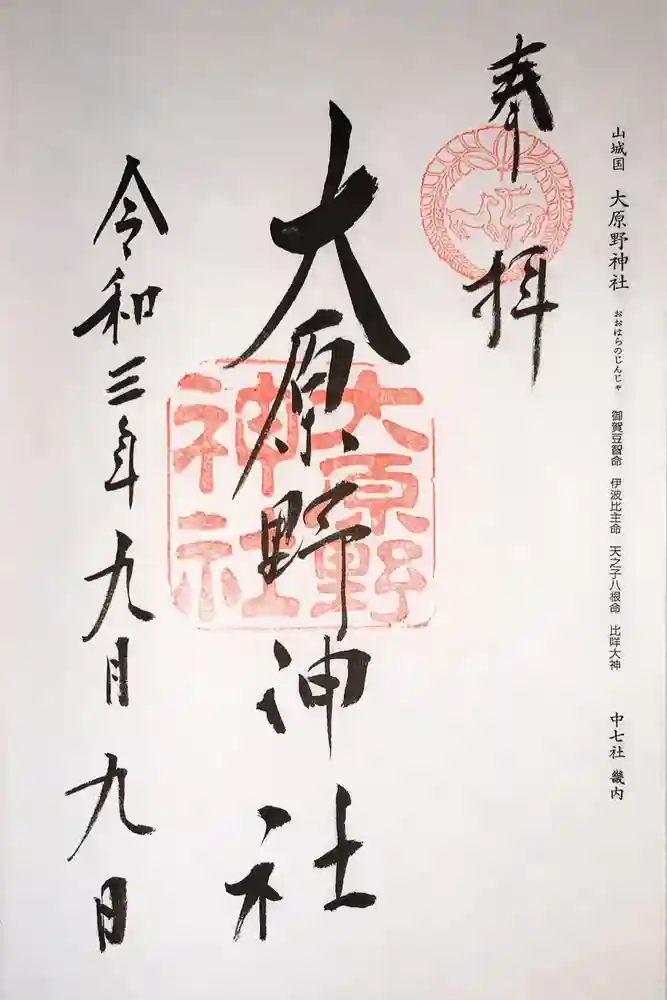 山城国 大原野神社 おおはらのじんじゃ 御賀豆智命 伊波比主命 天之子八根命 比咩大神 中七社 畿内
奉拝
大原野神社
大原野
神社
令和三年九月九日